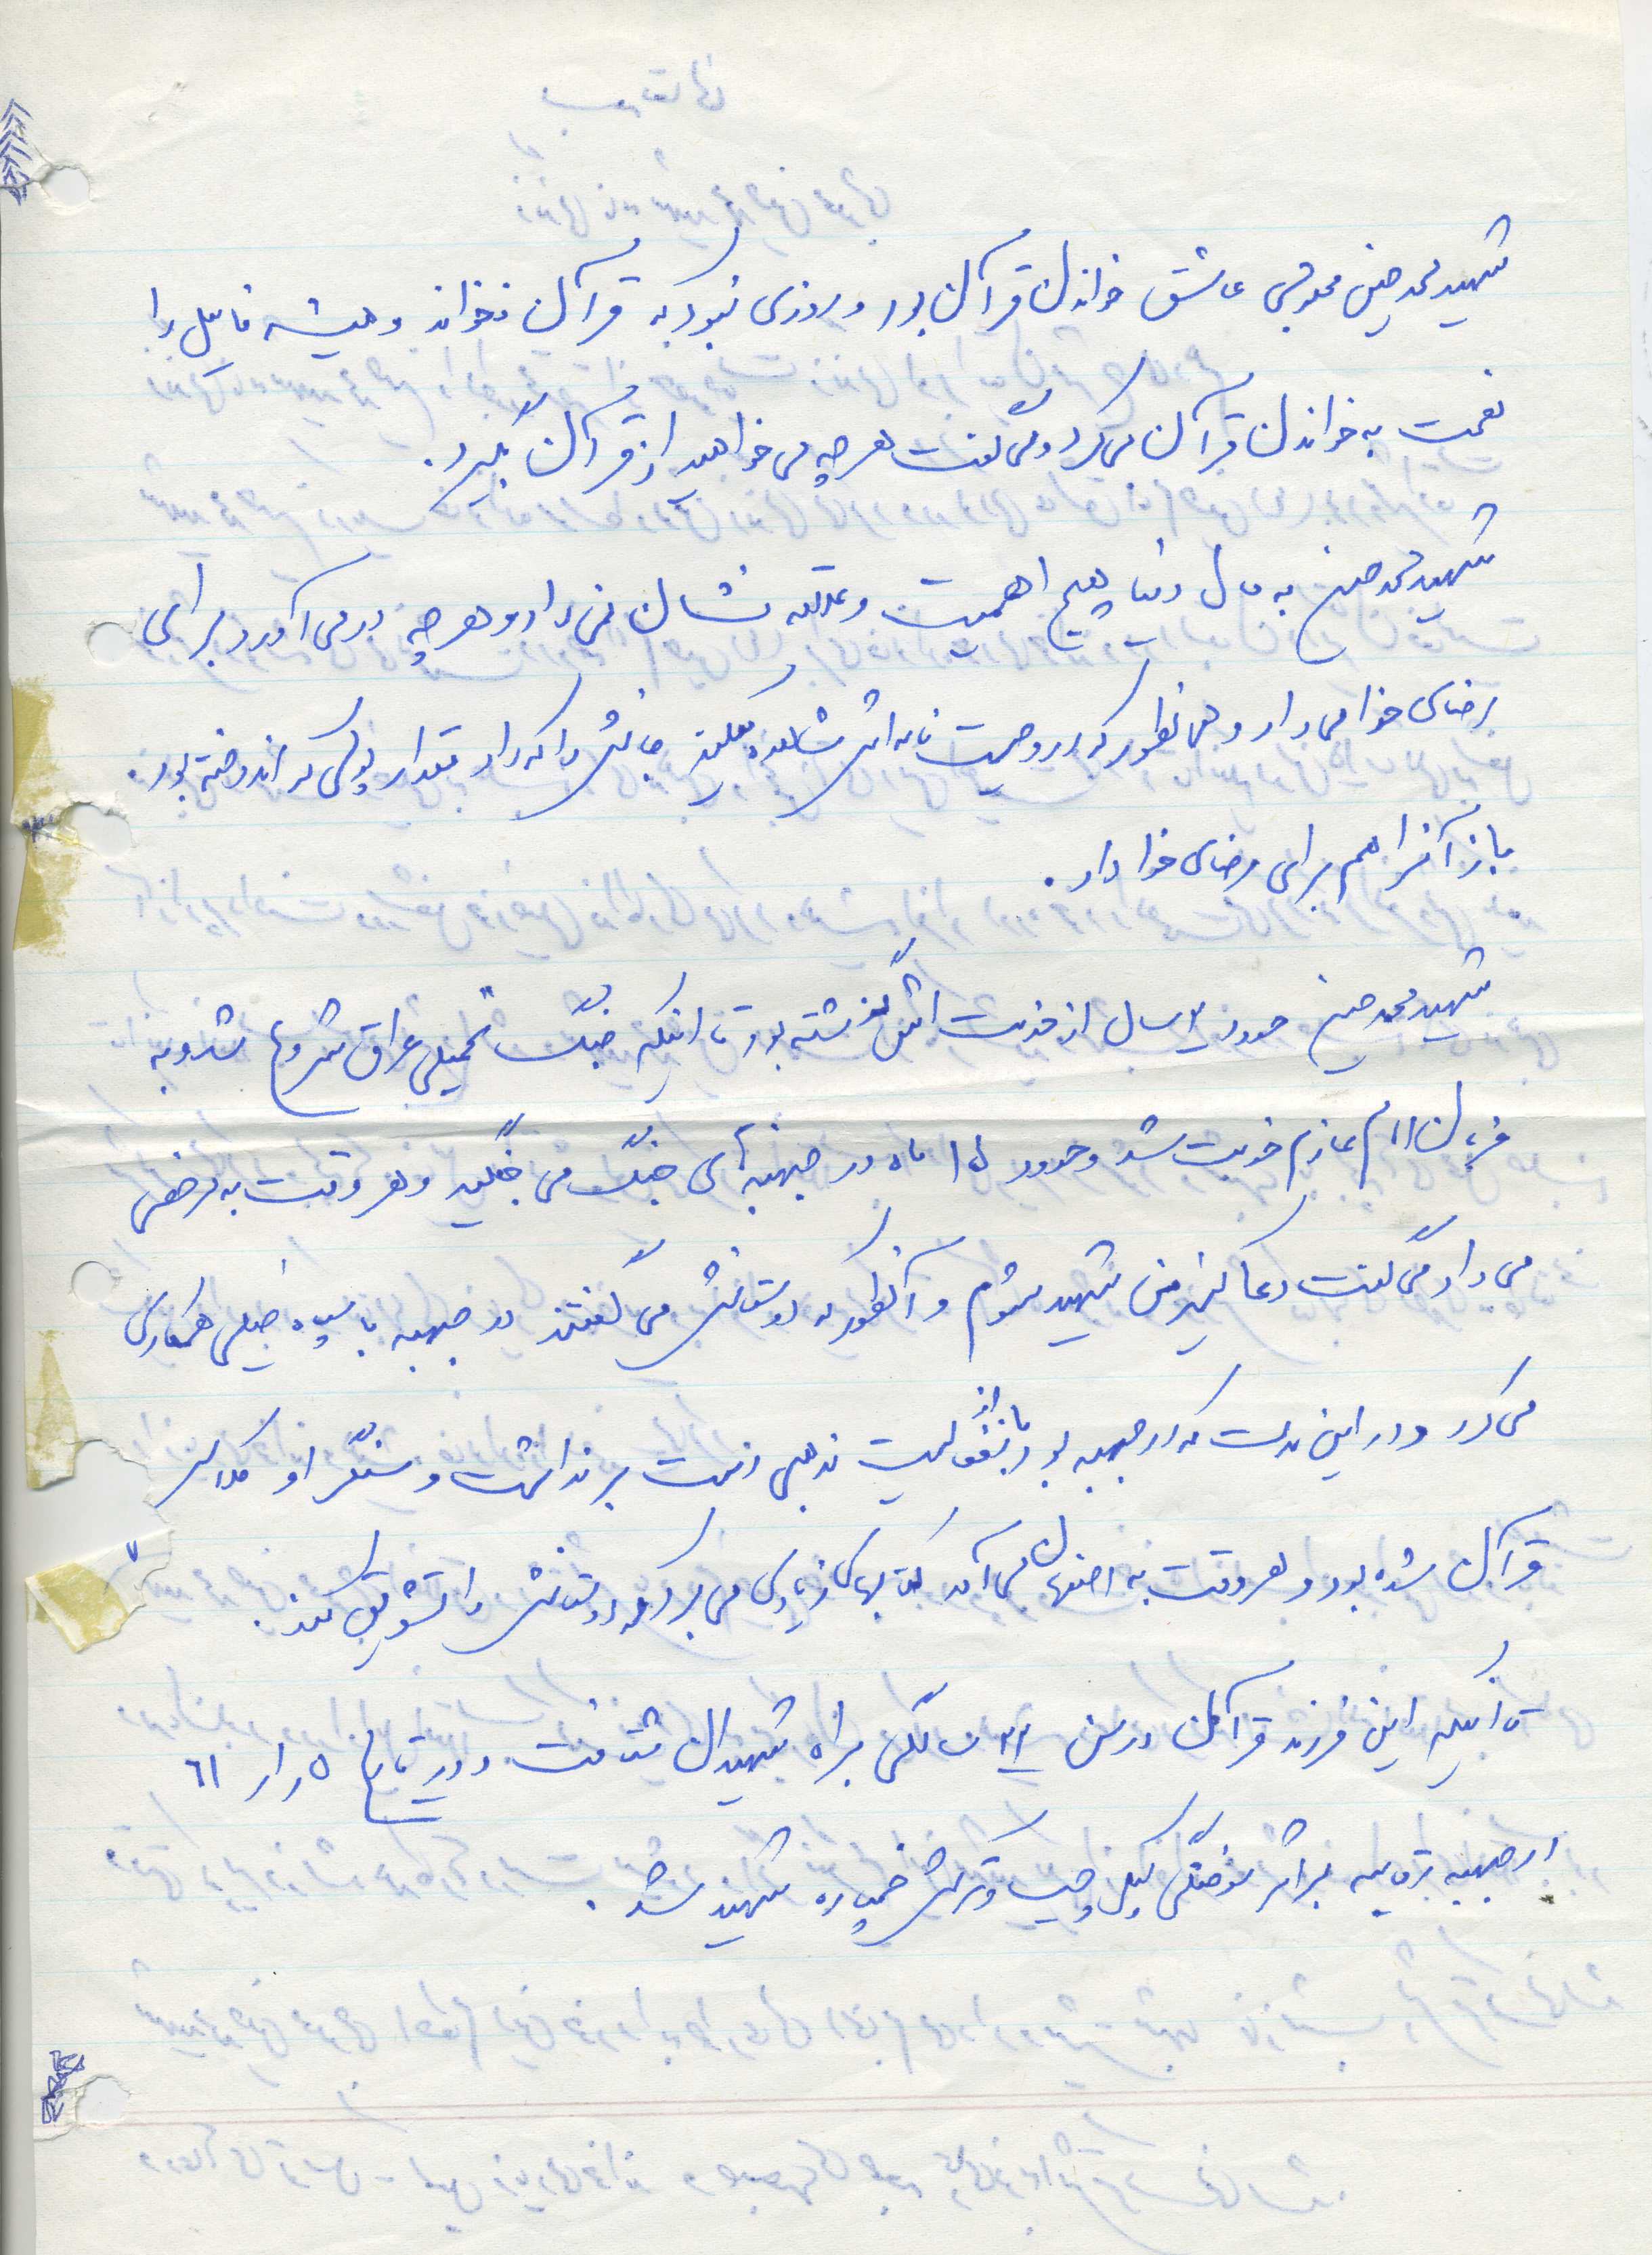 شهید محمد حسین محمودی عاشق خواندن قرآن بود و روزی نبود که قرآن نخواند و همیشه فامیل را
نصحت به خواندن قرآن می کرد و می گفت هر چه می خواهید از قرآن بگیرد.
شهید محمد حسین به مال دنیا هیچ اهمیت و علاقه نشان نمی داد و هر چه در می آورد برای
رضای خدا می داد و همانطور که در وصیت نامه اش مشاهده میکنید جانش را که داد مقدار پولی که اندوخته بود.
باز آنرا هم برای رضای خدا داد.
شهید محمد حسین حدود سال از خدمت اش گذشته بود تا اینکه جنگ تحمیلی عراق شروع شد و به
فرمان امام عازم خدمت شد و حدود ۱۵ ماه در جبهه های جنگ می جنگید و هر وقت به مرخصی
می آمد می گفت دعا کنید من شهید بشوم و آنطور که دوستانش می گفتند در جبهه با سپاه خیلی همکاری
می کرد و در این مدت که در جبهه بود باز از فعالیت مذهبی دست بر نداشت و سنگر او کلاس
قرآن شده بود و هر وقت به اصفهان می آمد کتابهای زیادی می برد که دوستانش را تشویق کند.
تا اینکه این فرزند قرآن در سن سالگی براه شهیدان شتافت و در تاریخ ۶۱
در جبهه بر اثر سوختگی و ترکش خمپاره شهید شد.